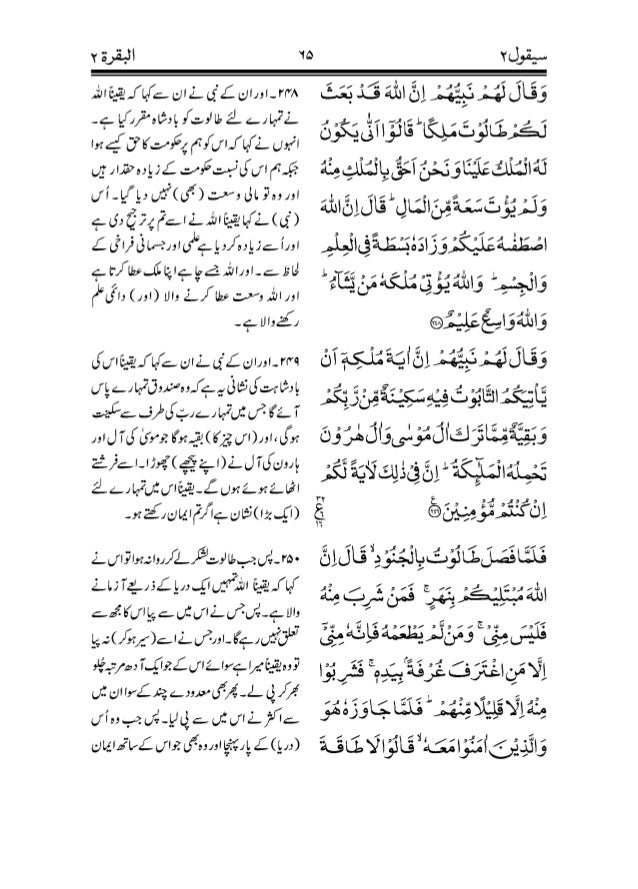 سیقول ۲
۶۵
البقرة ۲
وَقَالَ لَهُمْ نَبِيُّهُمْ اِنَّ اللّٰهَ قَدْ بَعَثَ
لَكُمْ طَالُوْتَ مَلِكًا ؕ قَالُوْۤا اَنّٰى يَكُوْنُ
لَهُ الْمُلْكُ عَلَيْنَا وَنَحْنُ اَحَقُّ بِالْمُلْكِ مِنْهُ
وَلَمْ يُؤْتَ سَعَةً مِّنَ الْمَالِ ؕ قَالَ اِنَّ اللّٰهَ
اصْطَفٰىهُ عَلَيْكُمْ وَزَادَهٗ بَسْطَةً فِي الْعِلْمِ
وَالْجِسْمِ ؕ وَاللّٰهُ يُؤْتِيْ مُلْكَهٗ مَنْ يَّشَآءُ ؕ
وَاللّٰهُ وَاسِعٌ عَلِيْمٌ ۝۲۴۸
وَقَالَ لَهُمْ نَبِيُّهُمْ اِنَّ اٰيَةَ مُلْكِهٖۤ اَنْ
يَّاْتِيَكُمُ التَّابُوْتُ فِيْهِ سَكِيْنَةٌ مِّنْ رَّبِّكُمْ
وَبَقِيَّةٌ مِّمَّا تَرَكَ اٰلُ مُوْسٰى وَاٰلُ هٰرُوْنَ
تَحْمِلُهُ الْمَلٰٓئِكَةُ ؕ اِنَّ فِيْ ذٰلِكَ لَاٰيَةً لَّكُمْ
اِنْ كُنْتُمْ مُّؤْمِنِيْنَ ۝۲۴۹
فَلَمَّا فَصَلَ طَالُوْتُ بِالْجُنُوْدِ ۙ قَالَ اِنَّ
اللّٰهَ مُبْتَلِيْكُمْ بِنَهَرٍ ۚ فَمَنْ شَرِبَ مِنْهُ
فَلَيْسَ مِنِّيْ ۚ وَمَنْ لَّمْ يَطْعَمْهُ فَاِنَّهٗ مِنِّيْۤ
اِلَّا مَنِ اغْتَرَفَ غُرْفَةًۢ بِيَدِهٖ ۚ فَشَرِبُوْا
مِنْهُ اِلَّا قَلِيْلًا مِّنْهُمْ ؕ فَلَمَّا جَاوَزَهٗ هُوَ
وَالَّذِيْنَ اٰمَنُوْا مَعَهٗ ۙ قَالُوْا لَا طَاقَةَ
۲۴۸۔ اور ان کے نبی نے ان سے کہا کہ یقیناً اللہ
نے تمہارے لئے طالوت کو بادشاہ مقرر کیا ہے۔
انہوں نے کہا کہ اس کو ہم پر حکومت کا حق کیسے ہوا
جبکہ ہم اس کی نسبت حکومت کے زیادہ حقدار ہیں
اور وہ تو مالی وسعت (بھی) نہیں دیا گیا۔ اُس
(نبی) نے کہا یقیناً اللہ نے اسے تم پر ترجیح دی ہے
اور اُسے زیادہ کر دیا ہے علمی اور جسمانی فراخی کے
لحاظ سے۔ اور اللہ جسے چاہے اپنا ملک عطا کرتا ہے
اور اللہ وسعت عطا کرنے والا (اور) دائمی علم
رکھنے والا ہے۔
۲۴۹۔ اور ان کے نبی نے ان سے کہا کہ یقیناً اس کی
بادشاہت کی نشانی یہ ہے کہ وہ صندوق تمہارے پاس
آئے گا جس میں تمہارے ربّ کی طرف سے سکینت
ہوگی، اور (اس چیز کا) بقیہ ہوگا جو موسیٰ کی آل اور
ہارون کی آل نے (اپنے پیچھے) چھوڑا۔ اسے فرشتے
اٹھائے ہوئے ہوں گے۔ یقیناً اس میں تمہارے لئے
(ایک بڑا) نشان ہے اگر تم ایمان رکھتے ہو۔
۲۵۰۔ پس جب طالوت لشکر لے کر روانہ ہوا تو اس نے
کہا کہ یقیناً اللہ تمہیں ایک دریا کے ذریعے آزمانے
والا ہے۔ پس جس نے اس میں سے پیا اس کا مجھ سے
تعلق نہیں رہے گا۔ اور جس نے اسے (سیر ہو کر) نہ پیا
تو وہ یقیناً میرا ہے سوائے اس کے جو ایک آدھ مرتبہ چلّو
بھر کر پی لے۔ پھر بھی معدودے چند کے سوا ان میں
سے اکثر نے اس میں سے پی لیا۔ پس جب وہ اُس
(دریا) کے پار پہنچا اور وہ بھی جو اس کے ساتھ ایمان